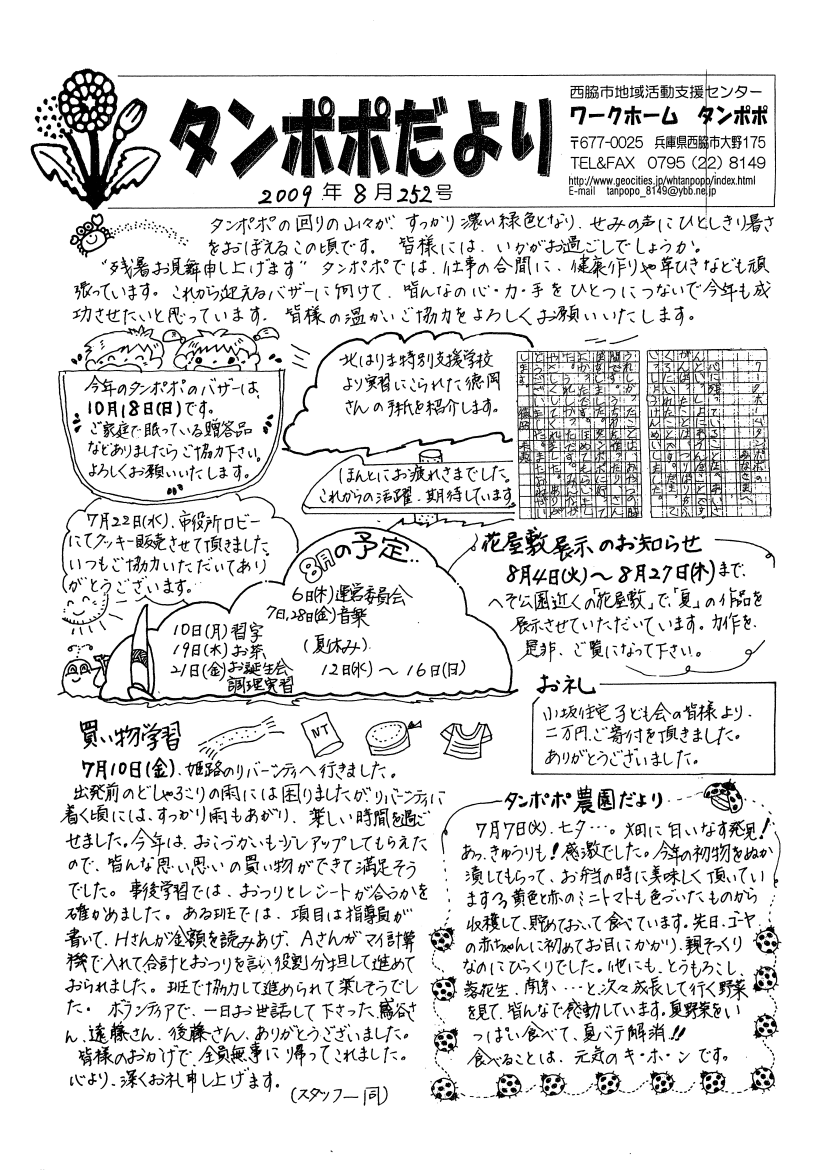 タンポポだより
2009年8月252号
西脇市地域活動支援センター
ワークホーム タンポポ
〒677-0025 兵庫県西脇市大野175
TEL&FAX 0795 (22) 8149
http://www.geocities.jp/whtanpopo/index.html
E-mail tanpopo_8149@ybb.ne.jp
タンポポの回りの山々が、すっかり濃い緑色となり、せみの声にひとしきり暑さ
をおぼえるこの頃です。皆様には、いかがお過ごしでしょうか。
"残暑お見舞申し上げます" タンポポでは、仕事の合間に、健康作りや草ひきなども頑
張っています。これから迎えるバザーに向けて、皆んなの心・力・手をひとつにつないで今年も成
功させたいと思っています。皆様の温かいご協力をよろしくお願いいたします。
今年のタンポポのバザーは、
10月18日(日)です。
ご家庭で眠っている贈答品
などありましたらご協力下さい。
よろしくお願いいたします。
北はりま特別支援学校
より実習にこられた徳岡
さんの手紙を紹介します。
ほんとにお疲れさまでした。
これからの活躍、期待しています
7月22日(水)、市役所ロビー
にてクッキー販売させて頂きました。
いつもご協力いただいてあり
がとうございます。
8月の予定
6日(木)運営委員会
7日,28日(金)音楽
10日(月)習字
19日(水)お茶
21日(金)お誕生会
調理実習
(夏休み)
12日(水)～16日(日)
花屋敷展示のお知らせ
8月4日(火)～8月27日(木)まで、
へそ公園近くの「花屋敷」で、「夏」の作品を
展示させていただいています。力作を、
是非、ご覧になって下さい。
お礼
小坂住宅子ども会の皆様より、
二万円、ご寄付を頂きました。
ありがとうございました。
買い物学習
NT
7月10日(金)、姫路のリバーシティへ行きました。
出発前のどしゃぶりの雨には困りましたがリバーシティに
着く頃には、すっかり雨もあがり、楽しい時間を過ご
せました。今年は、おこづかいも少しアップしてもらえた
ので、皆んな思い思いの買い物ができて満足そう
でした。事後学習では、おつりとレシートが合うかを
確かめました。ある班では、項目は指導員が
書いて、Hさんが金額を読みあげ、Aさんがマイ計算
機で入れて合計とおつりを言い役割分担して進めて
おられました。班で協力して進められて楽しそうでし
た。ボランティアで、一日お世話して下さった鷹谷さ
ん、遠藤さん、後藤さん、ありがとうございました。
皆様のおかげで、全員無事に帰ってこれました。
心より、深くお礼申し上げます。
(スタッフ一同)
タンポポ農園だより
7月7日(火)、七夕…。畑に白いなす発見!
あっ、きゅうりも!感激でした。今年の初物をぬか
漬してもらって、お弁当の時に美味しく頂いてい
ます。黄色と赤のミニトマトも色づいたものから
収穫して、貯めておいて食べています。先日、ゴーヤ
の赤ちゃんに初めてお目にかかり、親そっくり
なのにびっくりでした。他にも、とうもろこし、
落花生、南京、…と次々成長して行く野菜
を見て、皆んなで感動しています。夏野菜をい
っぱい食べて、夏バテ解消!!
食べることは、元気のキ・ホ・ンです。